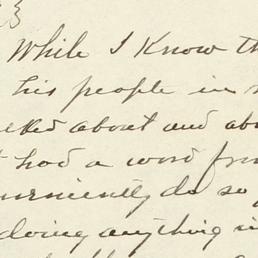 While I Know th
his people in
lked about and abo
had a word from
urniently do so
doing anything in